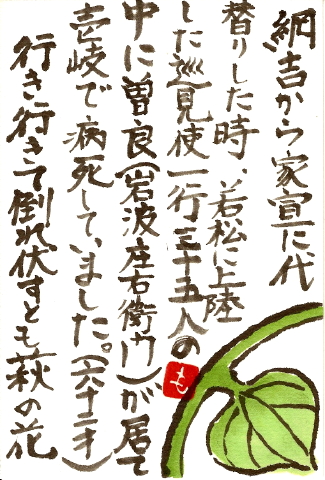 綱吉から家宣に代
替りした時、若松に上陸
した巡見使一行三十五人の
中に曽良(岩波庄右衛門)が居て
壱岐で病死していました。(六十二才)
行き行きて倒れ伏すとも萩の花
もも